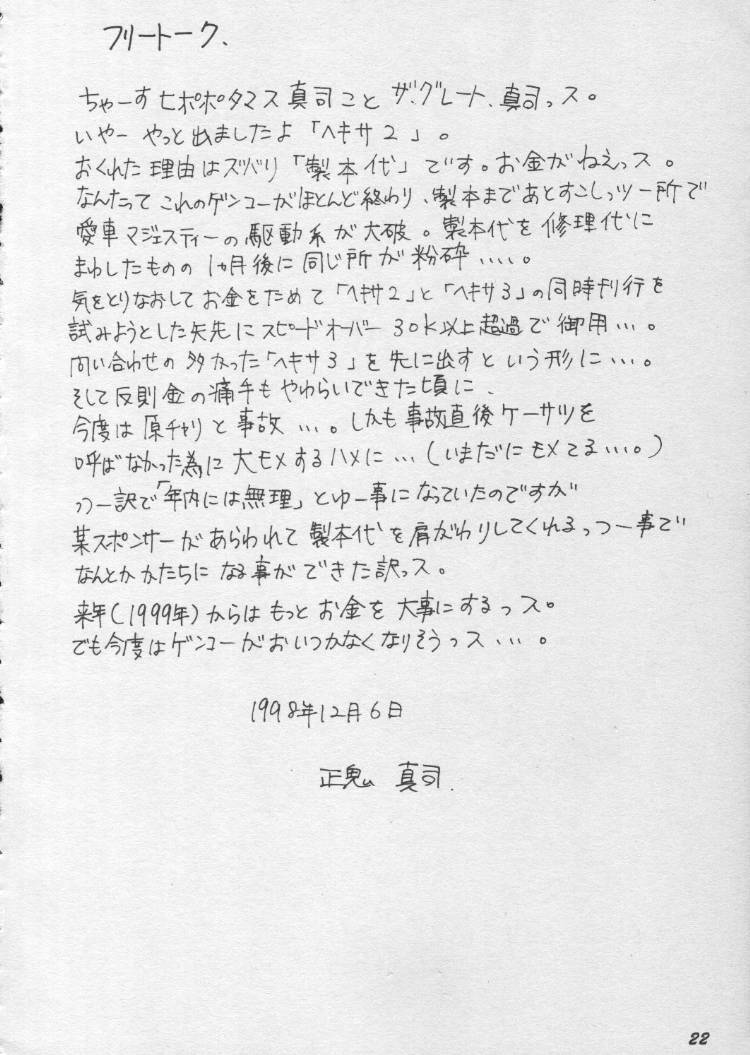 フリートーク、
ちゃーす ヒポポタマス真司こと ザ・グレート、真司っス。
いやー やっと出ましたよ「ヘキサ2」。
おくれた理由はズバリ「製本代」です。お金がねえっス。
なんたって これのゲンコーがほとんど終わり、製本まであとすこしっツー所で
愛車マジェスティーの駆動系が大破。製本代を修理代に
まわしたものの 1ヵ月後に同じ所が粉砕‥‥。
気をとりなおしてお金をためて「ヘキサ2」と「ヘキサ3」の同時刊行を
試みようとした矢先にスピードオーバー30k以上超過で御用…。
問い合わせの多かった「ヘキサ3」を先に出すという形に…。
そして反則金の痛手もやわらいできた頃に、
今度は原チャリと事故…。しかも事故直後ケーサツを
呼ばなかった為に大モメするハメに…(いまだにモメてる…。)
っつー訳で「年内には無理」とゆー事になっていたのですが
某スポンサーがあらわれて製本代を肩がわりしてくれるっつー事で
なんとかかたちになる事ができた訳っス。
来年(1999年)からはもっとお金を大事にするっス。
でも今度はゲンコーがおいつかなくなりそうっス…。
1998年12月6日
正鬼 真司.
22